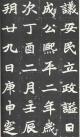 議安民立政諡
成公熙平元年
次丁酉二月壬辰
朔廿九日庚申窆